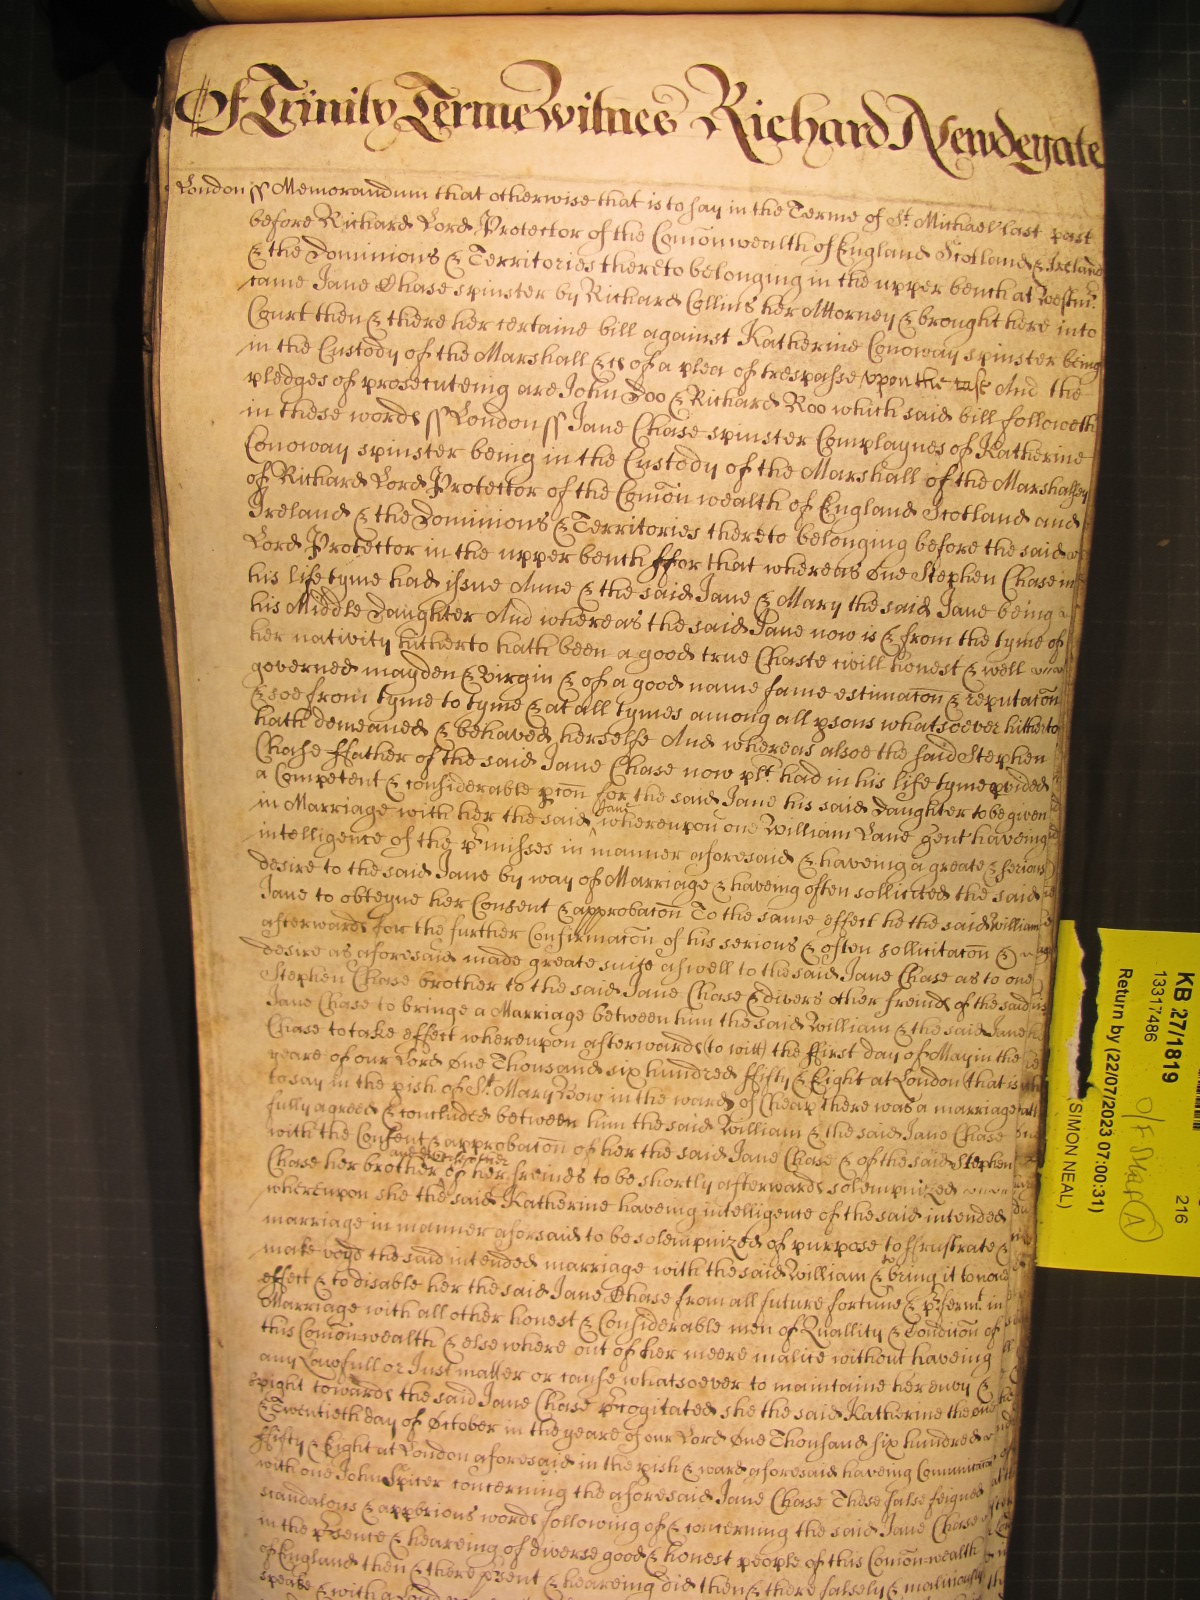 Of Trinity Terme Witnes Richard Newdegate
London ss Memorandum that otherwise that is to say in the Terme of St. Michael last past
before Richard Lord Protector of the Comonwealth of England Scotland & Ireland
& the Dominions & Territories thereto belonging in the upper bench at Westmr.
came Jane Chase spinster by Richard Collins her Attorney & brought here into
Court then & there her certaine bill against Katherine Conoway spinster being
in the Custody of the Marshall &c of a plea of trespasse upon the case And the
pledges of prosecuteing are John Doo & Richard Roo which said bill followeth
in these words ss London ss Jane Chase spinster Complaynes of Katherine
Conoway spinster being in the Custody of the Marshall of the Marshalsey
of Richard Lord Protector of the Comon wealth of England Scotland and
Ireland & the Dominions & Territories thereto belonging before the said
Lord Protector in the upper bench ffor that whereas one Stephen Chase in
his life tyme had issue Anne & the said Jane & Mary the said Jane being
his Middle Daughter And whereas the said Jane now is & from the tyme of
her nativity hitherto hath been a good true Chaste civill honest & well
governed mayden & virgin & of a good name fame estimacon & reputacon
& soe from tyme to tyme & at all tymes among all psons whatsoever hitherto
hath demeaned & behaved herselfe And whereas alsoe the said Stephen
Chase ffather of the said Jane Chase now plt. had in his life tyme pvided
a Competent & considerable pcon for the said Jane his said Daughter to be given
in Marriage with her the said Jane whereupon one William Lane gent haveing
intelligence of the pmisses in manner aforesaid & haveing a greate & serious
desire to the said Jane by way of Marriage & haveing often sollicited the said
Jane to obteyne her Consent & approbacon To the same effect he the said William
afterwards for the further Confirmacon of his serious & often sollicitacon &
desire as aforesaid made greate suite aswell to the said Jane Chase as to one
Stephen Chase brother to the said Jane Chase & divers other freinds of the said
Jane Chase to bringe a Marriage between him the said William & the said Jane
Chase to take effect whereupon afterwards (to witt) the ffirst day of May in the
yeare of our Lord One Thousand six hundred ffifty & Eight at London that is
to say in the pish of St. Mary Bow in the ward of Cheap there was a marriage
fully agreed & concluded between him the said William & the said Jane Chase
with the Consent & approbacon of her the said Jane Chase & of the said Stephen
Chase her brother & of her freinds to be shortly afterwards solempnized
whereupon she the said Katherine haveing intelligence of the said intended
marriage in manner aforsaid to be solempnized of purpose to ffrustrate &
make voyd the said intended marriage with the said William & to bring it to noe
effect & to disable her the said Jane Chase from all future fortune & pfermt. in
Marriage with all other honest & Considerable men of Quallity & Condicon of
this Comonwealth & elsewhere out of her meere malice without haveing
any Lawfull or Just matter or cause whatsoever to maintaine her envy &
spight towards the said Jane Chase pcogitated she the said Katherine the one
& Twentieth day of October in the yeare of our Lord One Thousand six hundred
ffifty & Eight at London aforesaid in the pish & ward aforesaid haveing Comunicacon
with one John Spicer concerning the aforesaid Jane Chase These false feigned
scandalous & opprbrious words following of & concerning the said Jane Chase
in the psence & heareing of diverse good & honest people of this Comon-wealth
of England then & there psent & heareing did then & there falsely & maliciously
speake & with a Loud
KB 27/1819
13317486
216
Return by (22/07/2023 07:00:31)
SIMON NEAL)